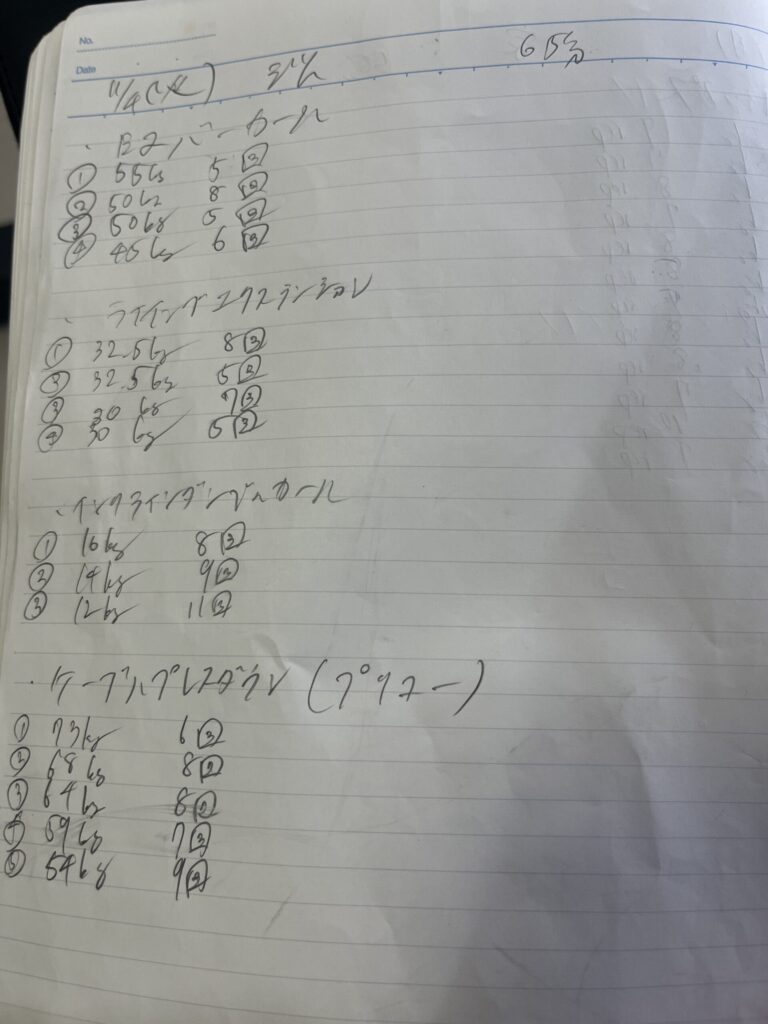 No.
Date
11/4(火) 65分
・EZバーカール
① 55kg 5 ③
② 50kg 8 ②
③ 50kg 5 ②
④ 45kg 6 ③
・ライイングエクステンション
① 32.5kg 8 ③
② 32.5kg 5 ③
③ 30kg 7 ③
④ 30kg 5 ③
・インクラインダンベルカール
① 16kg 8 ③
② 14kg 9 ③
③ 12kg 11 ③
・ケーブルプレスダウン(プリスー)
① 73kg 6 ③
② 68kg 8 ②
③ 64kg 8 ②
④ 59kg 7 ③
⑤ 54kg 9 ③